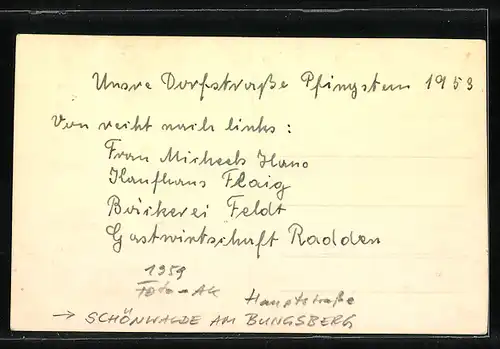 Unsre Dorfstraße Pfingsten 1953
Von recht nach links:
Frau Michels Haus
Kaufhaus Flaig
Bäckerei Feldt
Gastwirtschaft Radden
1959
Foto-AK Hauptstraße
→ SCHÖNWALDE AM BUNGSBERG